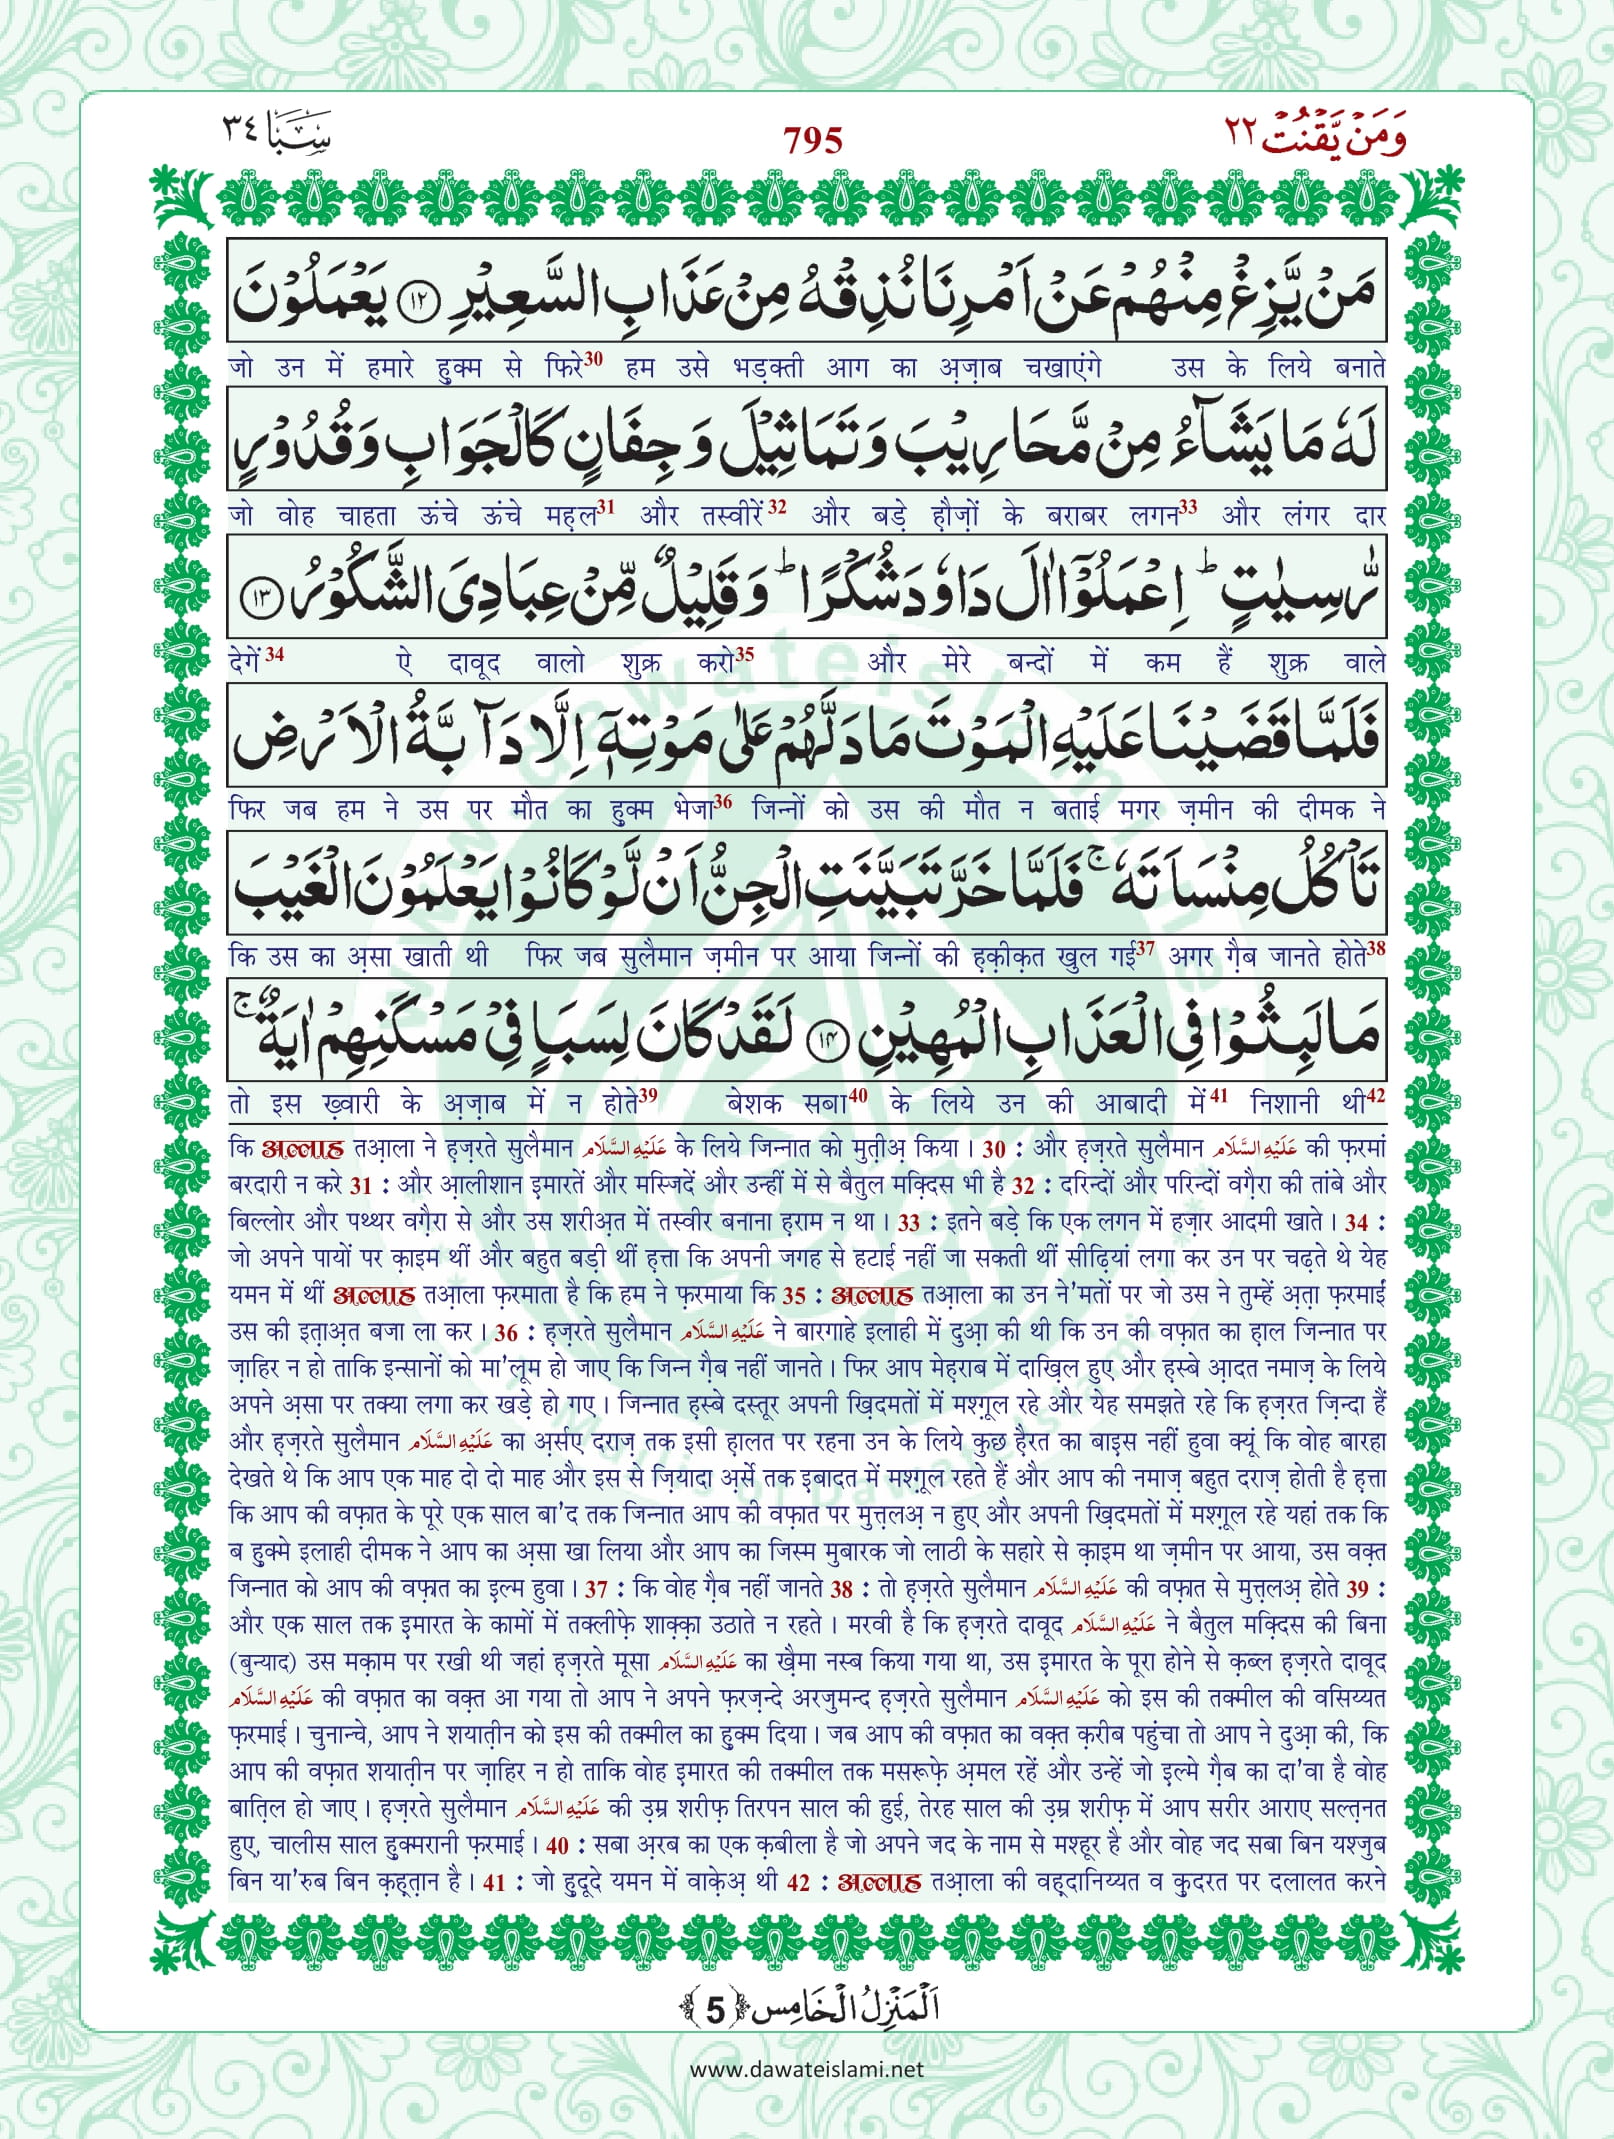 وَمَنْ يَّقْنُتْ ٢٢
795
سَبَا ٣٤
مَنْ يَّزِغْ مِنْهُمْ عَنْ اَمْرِنَا نُذِقْهُ مِنْ عَذَابِ السَّعِيْرِ ﴿۱۲﴾ يَعْمَلُوْنَ
जो उन में हमारे हुक्म से फिरे30 हम उसे भड़क्ती आग का अ़ज़ाब चखाएंगे उस के लिये बनाते
لَهٗ مَا يَشَآءُ مِنْ مَّحَارِيْبَ وَتَمَاثِيْلَ وَجِفَانٍ كَالْجَوَابِ وَقُدُوْرٍ
जो वोह चाहता ऊंचे ऊंचे महल31 और तस्वीरें32 और बड़े हौज़ों के बराबर लगन33 और लंगर दार
رّٰسِيٰتٍ ؕ اِعْمَلُوْۤا اٰلَ دَاوٗدَ شُكْرًا ؕ وَقَلِيْلٌ مِّنْ عِبَادِيَ الشَّكُوْرُ ﴿۱۳﴾
देगें34 ऐ दावूद वालो शुक्र करो35 और मेरे बन्दों में कम हैं शुक्र वाले
فَلَمَّا قَضَيْنَا عَلَيْهِ الْمَوْتَ مَا دَلَّهُمْ عَلٰى مَوْتِهٖۤ اِلَّا دَآبَّةُ الْاَرْضِ
फिर जब हम ने उस पर मौत का हुक्म भेजा36 जिन्नों को उस की मौत न बताई मगर ज़मीन की दीमक ने
تَاْكُلُ مِنْسَاَتَهٗ ۚ فَلَمَّا خَرَّ تَبَيَّنَتِ الْجِنُّ اَنْ لَّوْ كَانُوْا يَعْلَمُوْنَ الْغَيْبَ
कि उस का अ़सा खाती थी फिर जब सुलैमान ज़मीन पर आया जिन्नों की ह़क़ीक़त खुल गई37 अगर ग़ैब जानते होते38
مَا لَبِثُوْا فِي الْعَذَابِ الْمُهِيْنِ ﴿۱۴﴾ لَقَدْ كَانَ لِسَبَاٍ فِيْ مَسْكَنِهِمْ اٰيَةٌ ۚ
तो इस ख़्वारी के अ़ज़ाब में न होते39 बेशक सबा40 के लिये उन की आबादी में41 निशानी थी42
कि अल्लाह तआ़ला ने ह़ज़रते सुलैमान عَلَيْهِ السَّلَام के लिये जिन्नात को मुत़ीअ़ किया। 30 : और ह़ज़रते सुलैमान عَلَيْهِ السَّلَام की फ़रमां
बरदारी न करे 31 : और आ़लीशान इमारतें और मस्जिदें और उन्हीं में से बैतुल मक़्दिस भी है 32 : दरिन्दों और परिन्दों वग़ैरा की तांबे और
बिल्लोर और पथ्थर वग़ैरा से और उस शरीअ़त में तस्वीर बनाना ह़राम न था। 33 : इतने बड़े कि एक लगन में हज़ार आदमी खाते। 34 :
जो अपने पायों पर क़ाइम थीं और बहुत बड़ी थीं ह़त्ता कि अपनी जगह से हटाई नहीं जा सकती थीं सीढ़ियां लगा कर उन पर चढ़ते थे येह
यमन में थीं अल्लाह तआ़ला फ़रमाता है कि हम ने फ़रमाया कि 35 : अल्लाह तआ़ला का उन ने'मतों पर जो उस ने तुम्हें अ़त़ा फ़रमाईं
उस की इत़ाअ़त बजा ला कर। 36 : ह़ज़रते सुलैमान عَلَيْهِ السَّلَام ने बारगाहे इलाही में दुआ़ की थी कि उन की वफ़ात का ह़ाल जिन्नात पर
ज़ाहिर न हो ताकि इन्सानों को मा'लूम हो जाए कि जिन्न ग़ैब नहीं जानते। फिर आप मेह़राब में दाख़िल हुए और ह़स्बे आ़दत नमाज़ के लिये
अपने अ़सा पर तक्या लगा कर खड़े हो गए। जिन्नात ह़स्बे दस्तूर अपनी ख़िदमतों में मश्ग़ूल रहे और येह समझते रहे कि ह़ज़रत ज़िन्दा हैं
और ह़ज़रते सुलैमान عَلَيْهِ السَّلَام का अ़र्सए दराज़ तक इसी ह़ालत पर रहना उन के लिये कुछ ह़ैरत का बाइस नहीं हुवा क्यूं कि वोह बारहा
देखते थे कि आप एक माह दो दो माह और इस से ज़ियादा अ़र्से तक इ़बादत में मश्ग़ूल रहते हैं और आप की नमाज़ बहुत दराज़ होती है ह़त्ता
कि आप की वफ़ात के पूरे एक साल बा'द तक जिन्नात आप की वफ़ात पर मुत्त़लअ़ न हुए और अपनी ख़िदमतों में मश्ग़ूल रहे यहां तक कि
ब हुक्मे इलाही दीमक ने आप का अ़सा खा लिया और आप का जिस्म मुबारक जो लाठी के सहारे से क़ाइम था ज़मीन पर आया, उस वक़्त
जिन्नात को आप की वफ़ात का इ़ल्म हुवा। 37 : कि वोह ग़ैब नहीं जानते 38 : तो ह़ज़रते सुलैमान عَلَيْهِ السَّلَام की वफ़ात से मुत्त़लअ़ होते 39 :
और एक साल तक इमारत के कामों में तक्लीफ़े शाक़्क़ा उठाते न रहते। मरवी है कि ह़ज़रते दावूद عَلَيْهِ السَّلَام ने बैतुल मक़्दिस की बिना
(बुन्याद) उस मक़ाम पर रखी थी जहां ह़ज़रते मूसा عَلَيْهِ السَّلَام का ख़ैमा नस्ब किया गया था, उस इमारत के पूरा होने से क़ब्ल ह़ज़रते दावूद
عَلَيْهِ السَّلَام की वफ़ात का वक़्त आ गया तो आप ने अपने फ़रज़न्दे अरजुमन्द ह़ज़रते सुलैमान عَلَيْهِ السَّلَام को इस की तक्मील की वसिय्यत
फ़रमाई। चुनान्चे, आप ने शयात़ीन को इस की तक्मील का हुक्म दिया। जब आप की वफ़ात का वक़्त क़रीब पहुंचा तो आप ने दुआ़ की, कि
आप की वफ़ात शयात़ीन पर ज़ाहिर न हो ताकि वोह इमारत की तक्मील तक मसरूफ़े अ़मल रहें और उन्हें जो इ़ल्मे ग़ैब का दा'वा है वोह
बात़िल हो जाए। ह़ज़रते सुलैमान عَلَيْهِ السَّلَام की उ़म्र शरीफ़ तिरपन साल की हुई, तेरह साल की उ़म्र शरीफ़ में आप सरीर आराए सल्त़नत
हुए, चालीस साल हुक्मरानी फ़रमाई। 40 : सबा अ़रब का एक क़बीला है जो अपने जद के नाम से मश्हूर है और वोह जद सबा बिन यश्जुब
बिन या'रुब बिन क़ह़्त़ान है। 41 : जो हुदूदे यमन में वाक़ेअ़ थी 42 : अल्लाह तआ़ला की वह़्दानिय्यत व क़ुदरत पर दलालत करने
اَلْمَنْزِلُ الْخَامِس ﴿5﴾
www.dawateislami.net